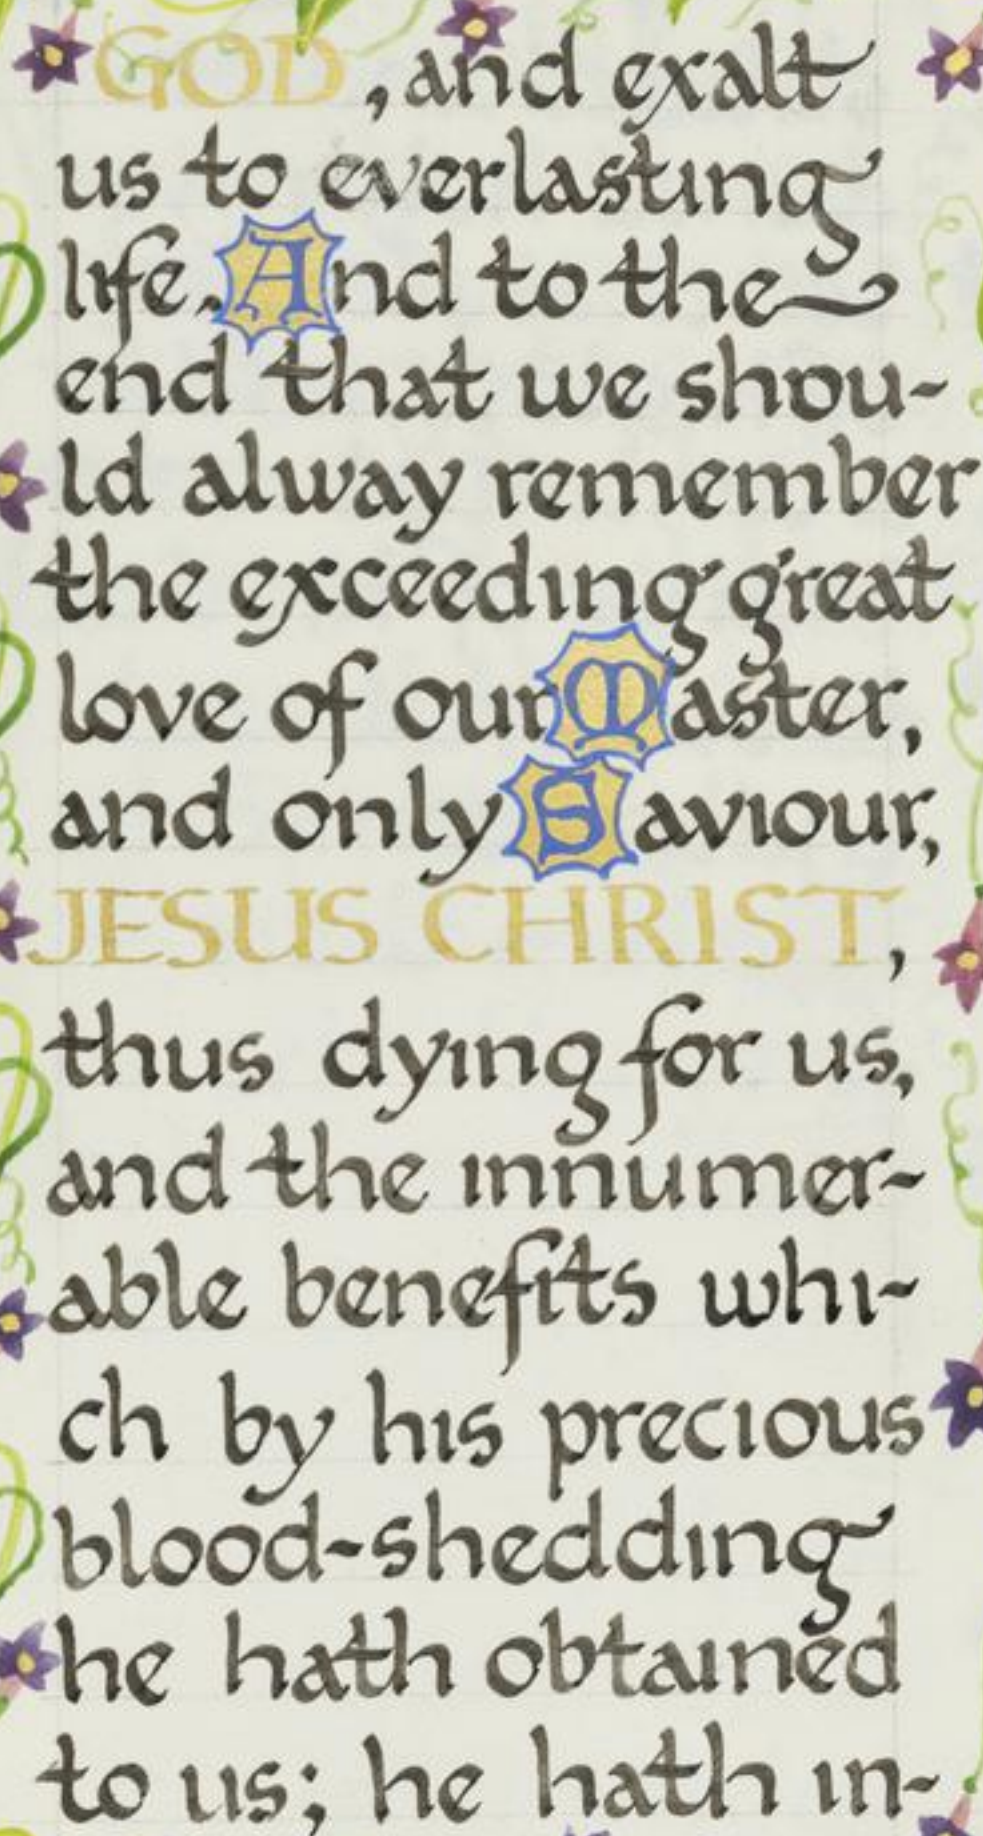 GOD, and exalt
us to everlasting
life. And to the
end that we shou-
ld alway remember
the exceeding great
love of our Master,
and only Saviour,
JESUS CHRIST,
thus dying for us,
and the innumer-
able benefits whi-
ch by his precious
blood-shedding
he hath obtained
to us; he hath in-